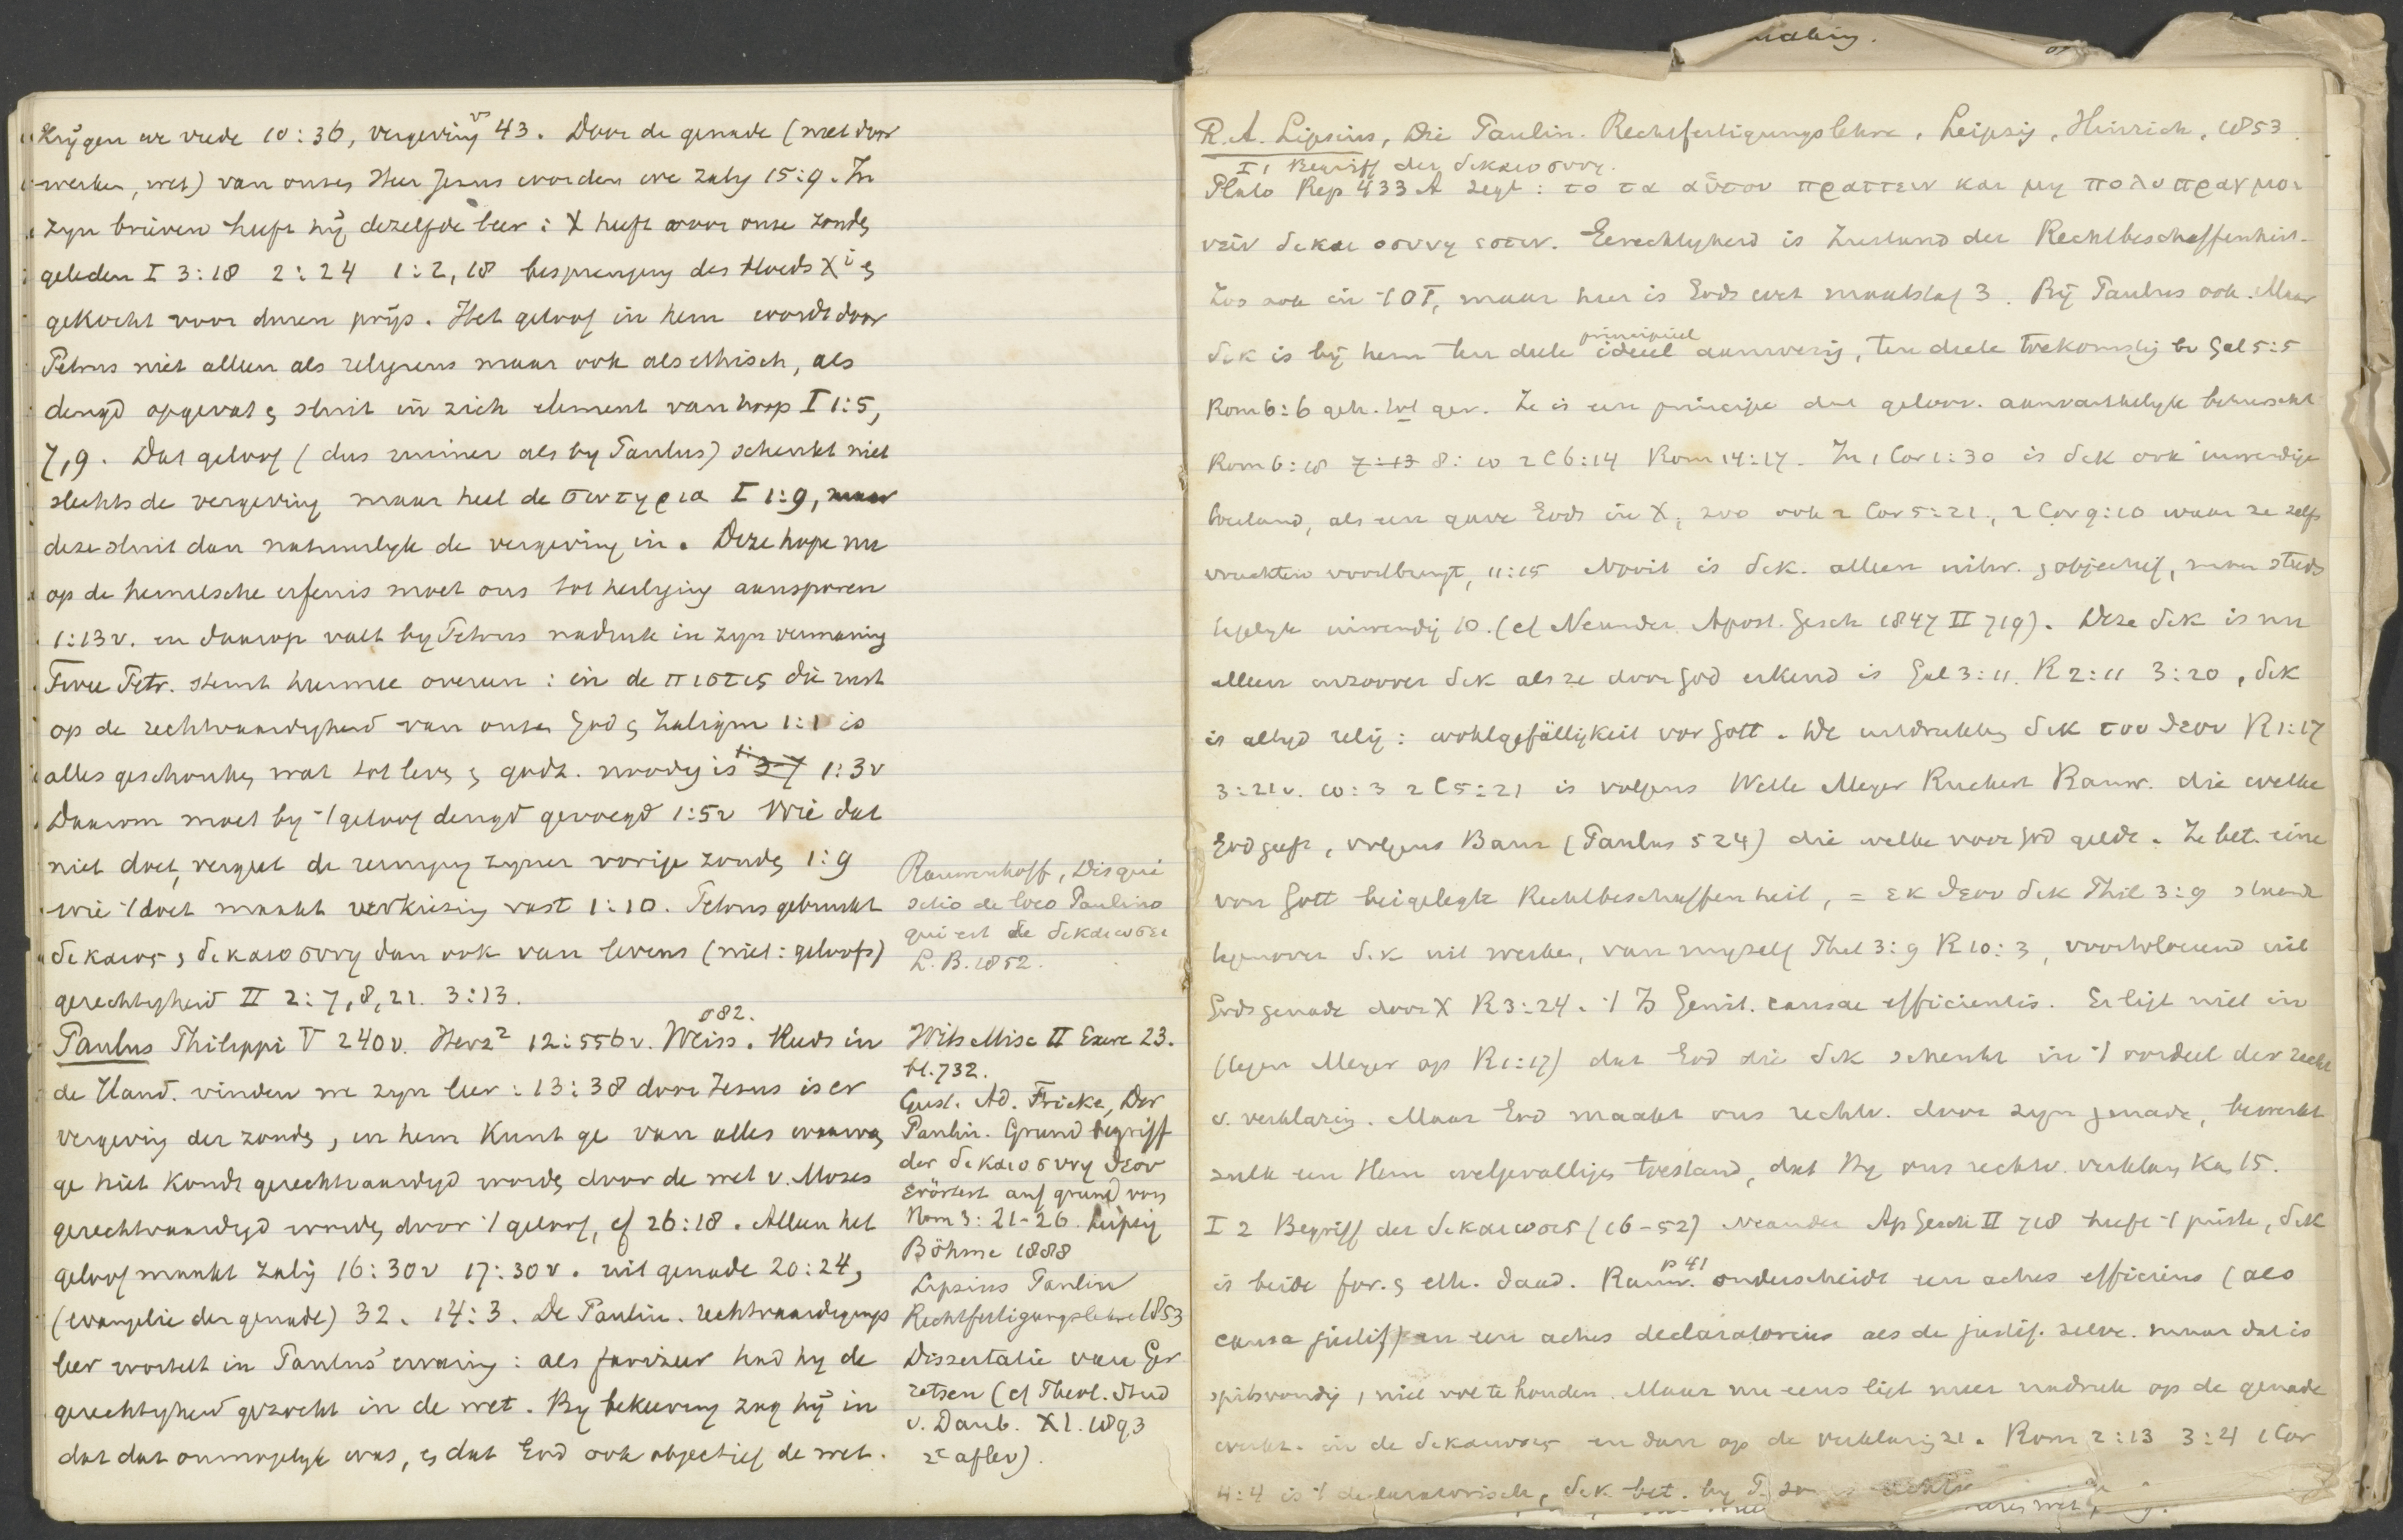 krijgen we vrede 10:36, vergeving vs 43. Door de genade (niet door
werken, wet) van onzen Heer Jezus worden we zalig 15:9. In
zijn brieven heeft hij dezelfde leer: X heeft voor onze zonde
geleden I 3:18 2:24 1:2, 18 besprenging des bloeds Xi &
gekocht voor duren prijs. Het geloof in hem wordt door
Petrus niet alleen als religieus maar ook als ethisch, als
deugd opgevat & sluit in zich element van hoop I 1:5,
7, 9. Dat geloof (dus ruimer als by Paulus) schenkt niet
slechts de vergeving maar heel de σωτηρια I 1:9, maar
deze sluit dan natuurlyk de vergeving in. Deze hope nu
op de hemelsche erfenis moet ons tot heiliging aansporen
1:13v. en daarop valt by Petrus nadruk in zyn vermaning
Twee Petr. stemt hiermee overeen: in de πιστις die rust
op de rechtvaardigheid van onzen God & Zaligm 1:1 is
alles geschonken wat tot leven & godz. noodig is 1:3v
Daarom moet by 't geloof deugd gevoegd 1:5v Wie dat
niet doet, vergeet de reiniging zyner vorige zonde 1:9
wie 't doet maakt verkiezing vast 1:10. Petrus gebruikt
δικαιος & δικαιοσυνη dan ook van levens (niet: geloofs)
gerechtigheid II 2:7, 8, 21. 3:13.
Paulus Philippi V 240v. Herz² 12:556v. Weiss § 82. Reeds in
de Hand. vinden we zyn leer: 13:38 door Jezus is er
vergeving der zonde, in hem kunt ge van alles waarvan
ge niet kondt gerechtvaardigd worden door de wet v. Mozes
gerechtvaardigd worden door 't geloof, cf 26:18. Alleen het
geloof maakt zalig 16:30v 17:30v. uit genade 20:24,
(evangelie der genade) 32. 14:3. De Paulin. rechtvaardigings
leer wortelt in Paulus' ervaring: als farizeer had hy de
gerechtigheid gezocht in de wet. By bekeering zag hij in
dat dat onmogelyk was, & dat God ook objectief de wet.
Rauwenhoff, Disqui
sitio de loco Paulino
qui est de δικαιωσει
L.B. 1852.
Wits Misc II Exerc 23.
bl. 732.
Gust. Ad. Fricke, Der
Paulin. Grundbegriff
der δικαιοσυνη θεου
erörtert auf grund von
Rom 3:21-26. Leipzig
Böhme 1888
Lipsius Paulin
Rechtfertigungslehre 1853
Dissertatie van Ger
retsen (cf Theol. Stud
v. Daub. XI. 1893
2e aflev).
R. A. Lipsius, Die Paulin. Rechtfertigungslehre, Leipzig, Hinrich, 1853.
I, 1 Begriff der δικαιοσυνη.
Plato Rep 433 A zegt: το τα αὑτου πραττειν και μη πολυπραγμο
νειν δικαιοσυνη εστιν. Gerechtigheid is Zustand der Rechtbeschaffenheit.
Zoo ook in 't OT, maar hier is Gods wet maatstaf 3. Bij Paulus ook. Maar
δικ is bij hem ten deele principieel ideëel aanwezig, ten deele toekomstig bv Gal 5:5
Rom 6:6 geh. tot ger. Ze is een principe dat geloov. aanvankelyk beheerscht
Rom 6:18 7:13 8:10 2 C 6:14 Rom 14:17. In 1 Cor 1:30 is δικ ook inwendige
toestand, als een gave Gods in X, zoo ook 2 Cor 5:21, 2 Cor 9:10 waar ze zelfs
vruchten voortbrengt, 11:15 Nooit is δικ. alleen uitw. & objectief, maar steeds
tegelyk inwendig 10. (cf Neander Apost. Gesch 1847 II 719). Deze δικ is nu
alleen inzoover δικ als ze door God erkend is Gal 3:11. R 2:11 3:20, δικ
is altyd relig: wohlgefälligkeit vor Gott. De uitdrukking δικ του θεου R 1:17
3:21v. 10:3 2 C 5:21 is volgens Wette Meyer Ruckert Rauw. die welke
God geeft, volgens Baur (Paulus 524) die welke voor God geldt. Ze bet. eine
von Gott beigelegte Rechtbeschaffenheit, = εκ θεου δικ Phil 3:9 staande
tegenover δικ uit werken, van myzelf Phil 3:9 R 10:3, voortvloeiend uit
Gods genade door X R 3:24. 't Is Genit. causae efficientis. Er ligt niet in
(tegen Meyer op R 1:17) dat God die δικ schenkt in 't oordeel der recht
v. verklaring. Maar God maakt ons rechtv. door zyn genade, bewerkt
zulk een Hem welgevalligen toestand, dat Hy ons rechtv. verklaren kan 15.
I 2 Begriff der δικαιωσις (16-52) Neander Ap Gesch II 718 heeft 't juiste, δικ
is beide for. & eth. daad. Rauw. p 41 onderscheidt een actus efficiens (als
causa justif) en een actus declaratorius als de justif. zelve. maar dat is
spitsvondig, niet vol te houden. Maar nu eens ligt meer nadruk op de genade
werkt. in de δικαιωσις en dan op de verklaring 21. Rom 2:13 3:4 1 Cor
4:4 is 't declaratorisch, δικ. bet. by P.